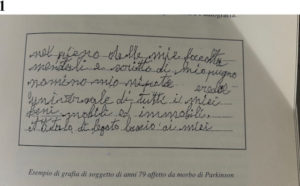 1
nel pieno delle mie facoltà
mentali e scritto di mio pugno
nomino mio nipote erede
universale di tutti i miei
beni mobili ed immobili
A titolo di legato lascio ai miei
Esempio di grafia di soggetto di anni 79 affetto da morbo di Parkinson